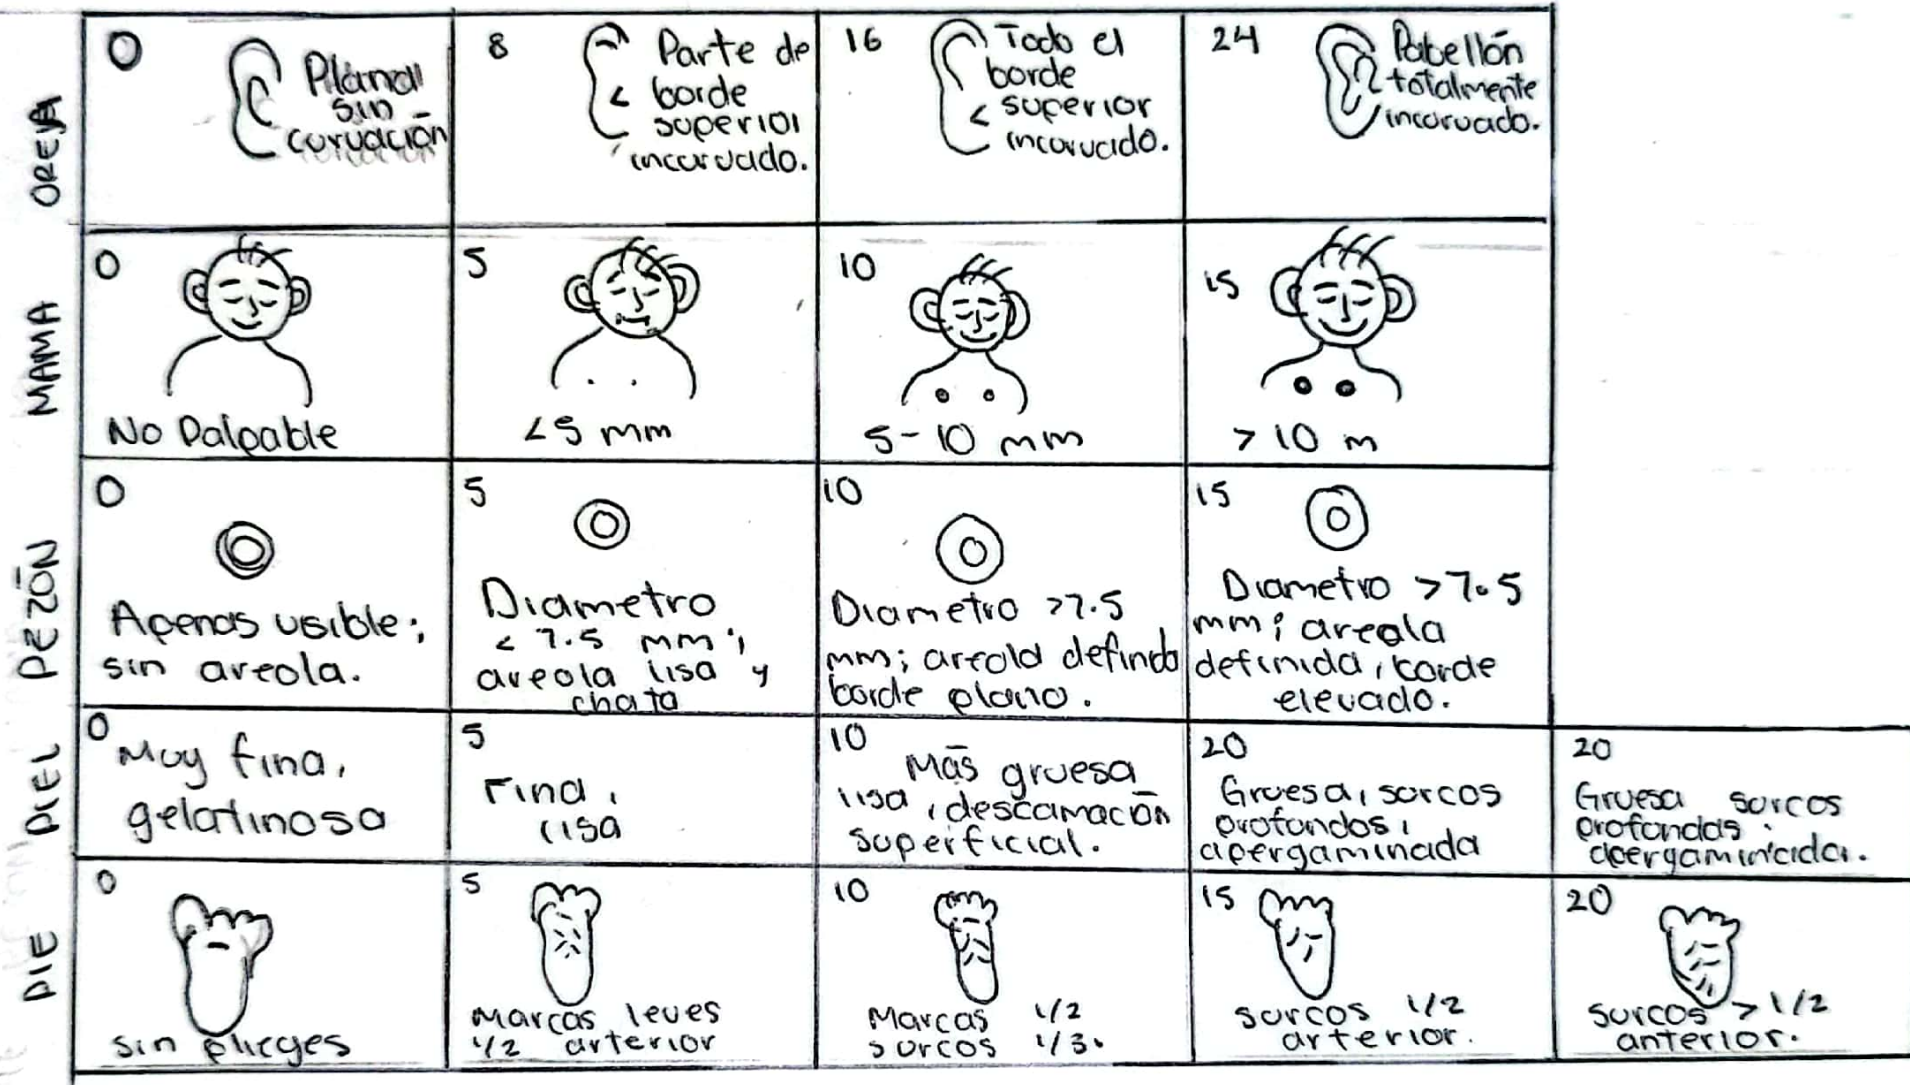 OREJA
0
Plana
sin
curvación
8
Parte de
borde
superior
incurvado.
16
Todo el
borde
superior
incurvado.
24
Pabellón
totalmente
incurvado.
MAMA
0
No Palpable
5
<5 mm
10
5-10 mm
15
> 10 m
PEZÓN
0
Apenas visible;
sin areola.
5
Diametro
< 7.5 mm;
areola lisa y
chata
10
Diametro >7.5
mm; areola definda
borde plano.
15
Diametro >7.5
mm; areola
definida, borde
elevado.
PIEL
0
Muy fina,
gelatinosa
5
Fina,
lisa
10
Más gruesa
lisa, descamación
superficial.
20
Gruesa, surcos
profundos,
apergaminada
20
Gruesa surcos
profundas.
apergaminada.
PIE
0
sin plieges
5
Marcas leves
1/2 arterior
10
Marcas 1/2
surcos 1/3.
15
surcos 1/2
arterior.
20
surcos > 1/2
anterior.